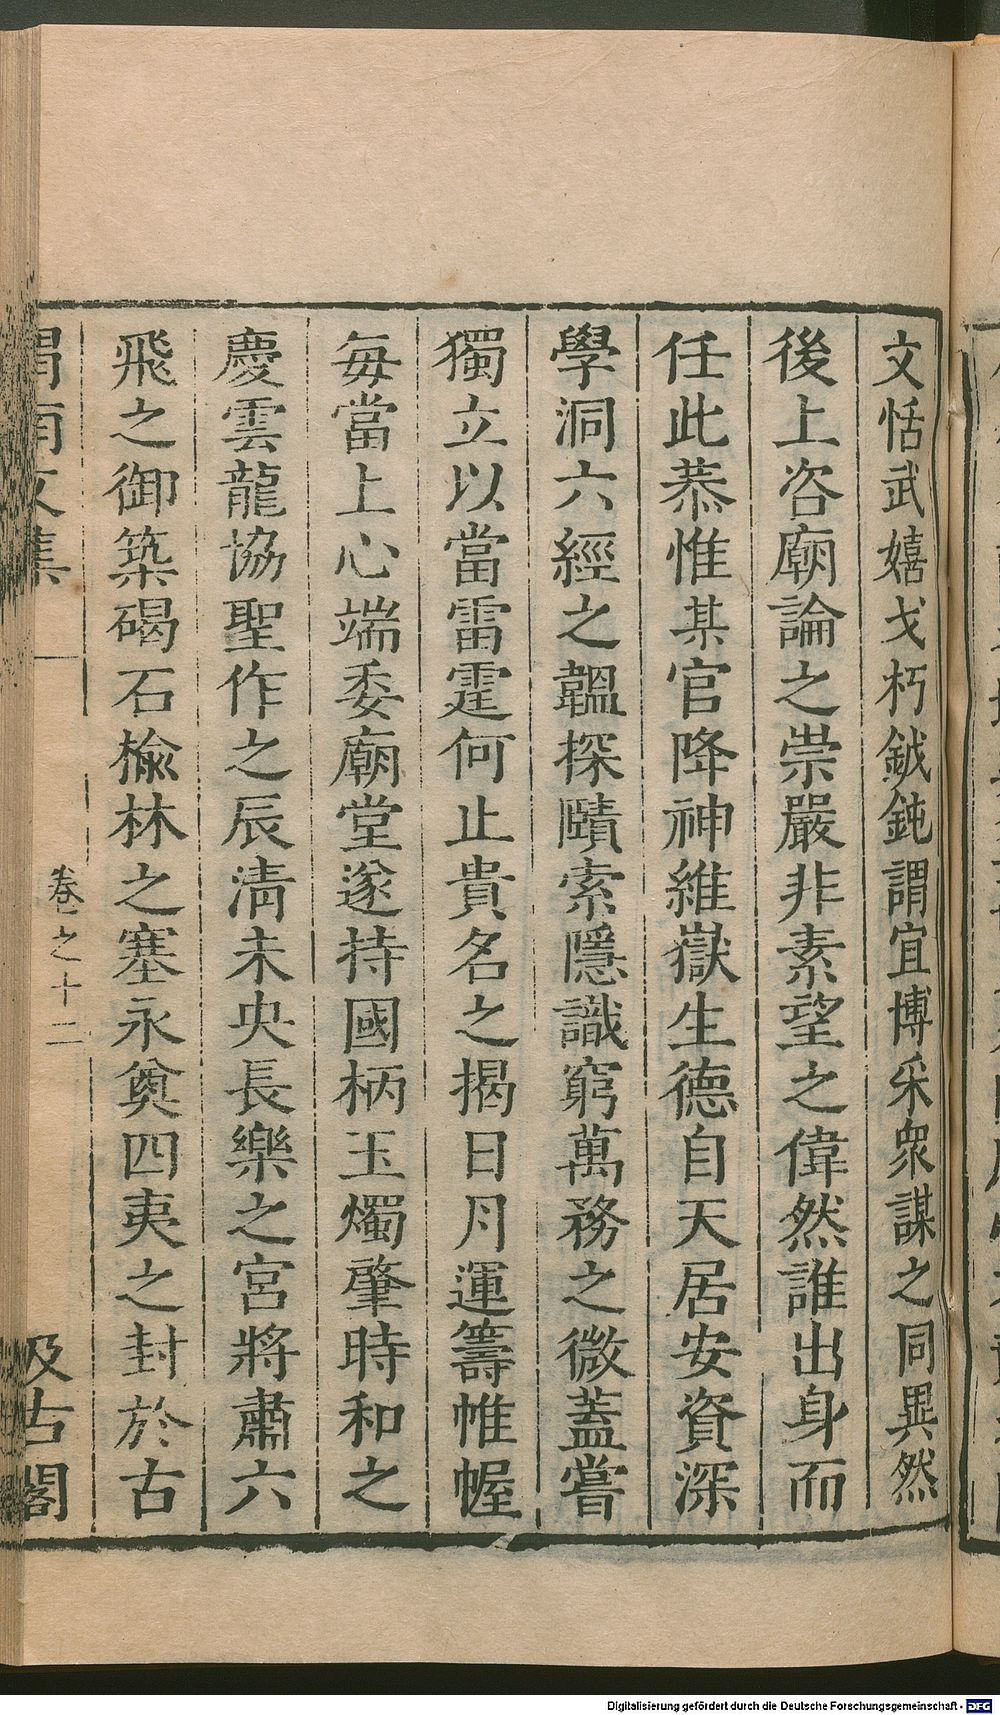 文恬武嬉戈朽鉞鈍謂宜博采衆謀之同異然
後上咨廟論之崇嚴非素望之偉然誰出身而
任此恭惟某官降神維嶽生德自天居安資深
學洞六經之韞探賾索隱識窮萬務之微蓋嘗
獨立以當雷霆何止貴名之揭日月運籌帷幄
每當上心端委廟堂遂持國柄玉燭肇時和之
慶雲龍協聖作之辰淸未央長樂之宮將肅六
飛之御築碣石榆林之塞永奠四夷之封於古
渭南文集
卷之十二
汲古閣
Digitalisierung gefördert durch die Deutsche Forschungsgemeinschaft - DFG